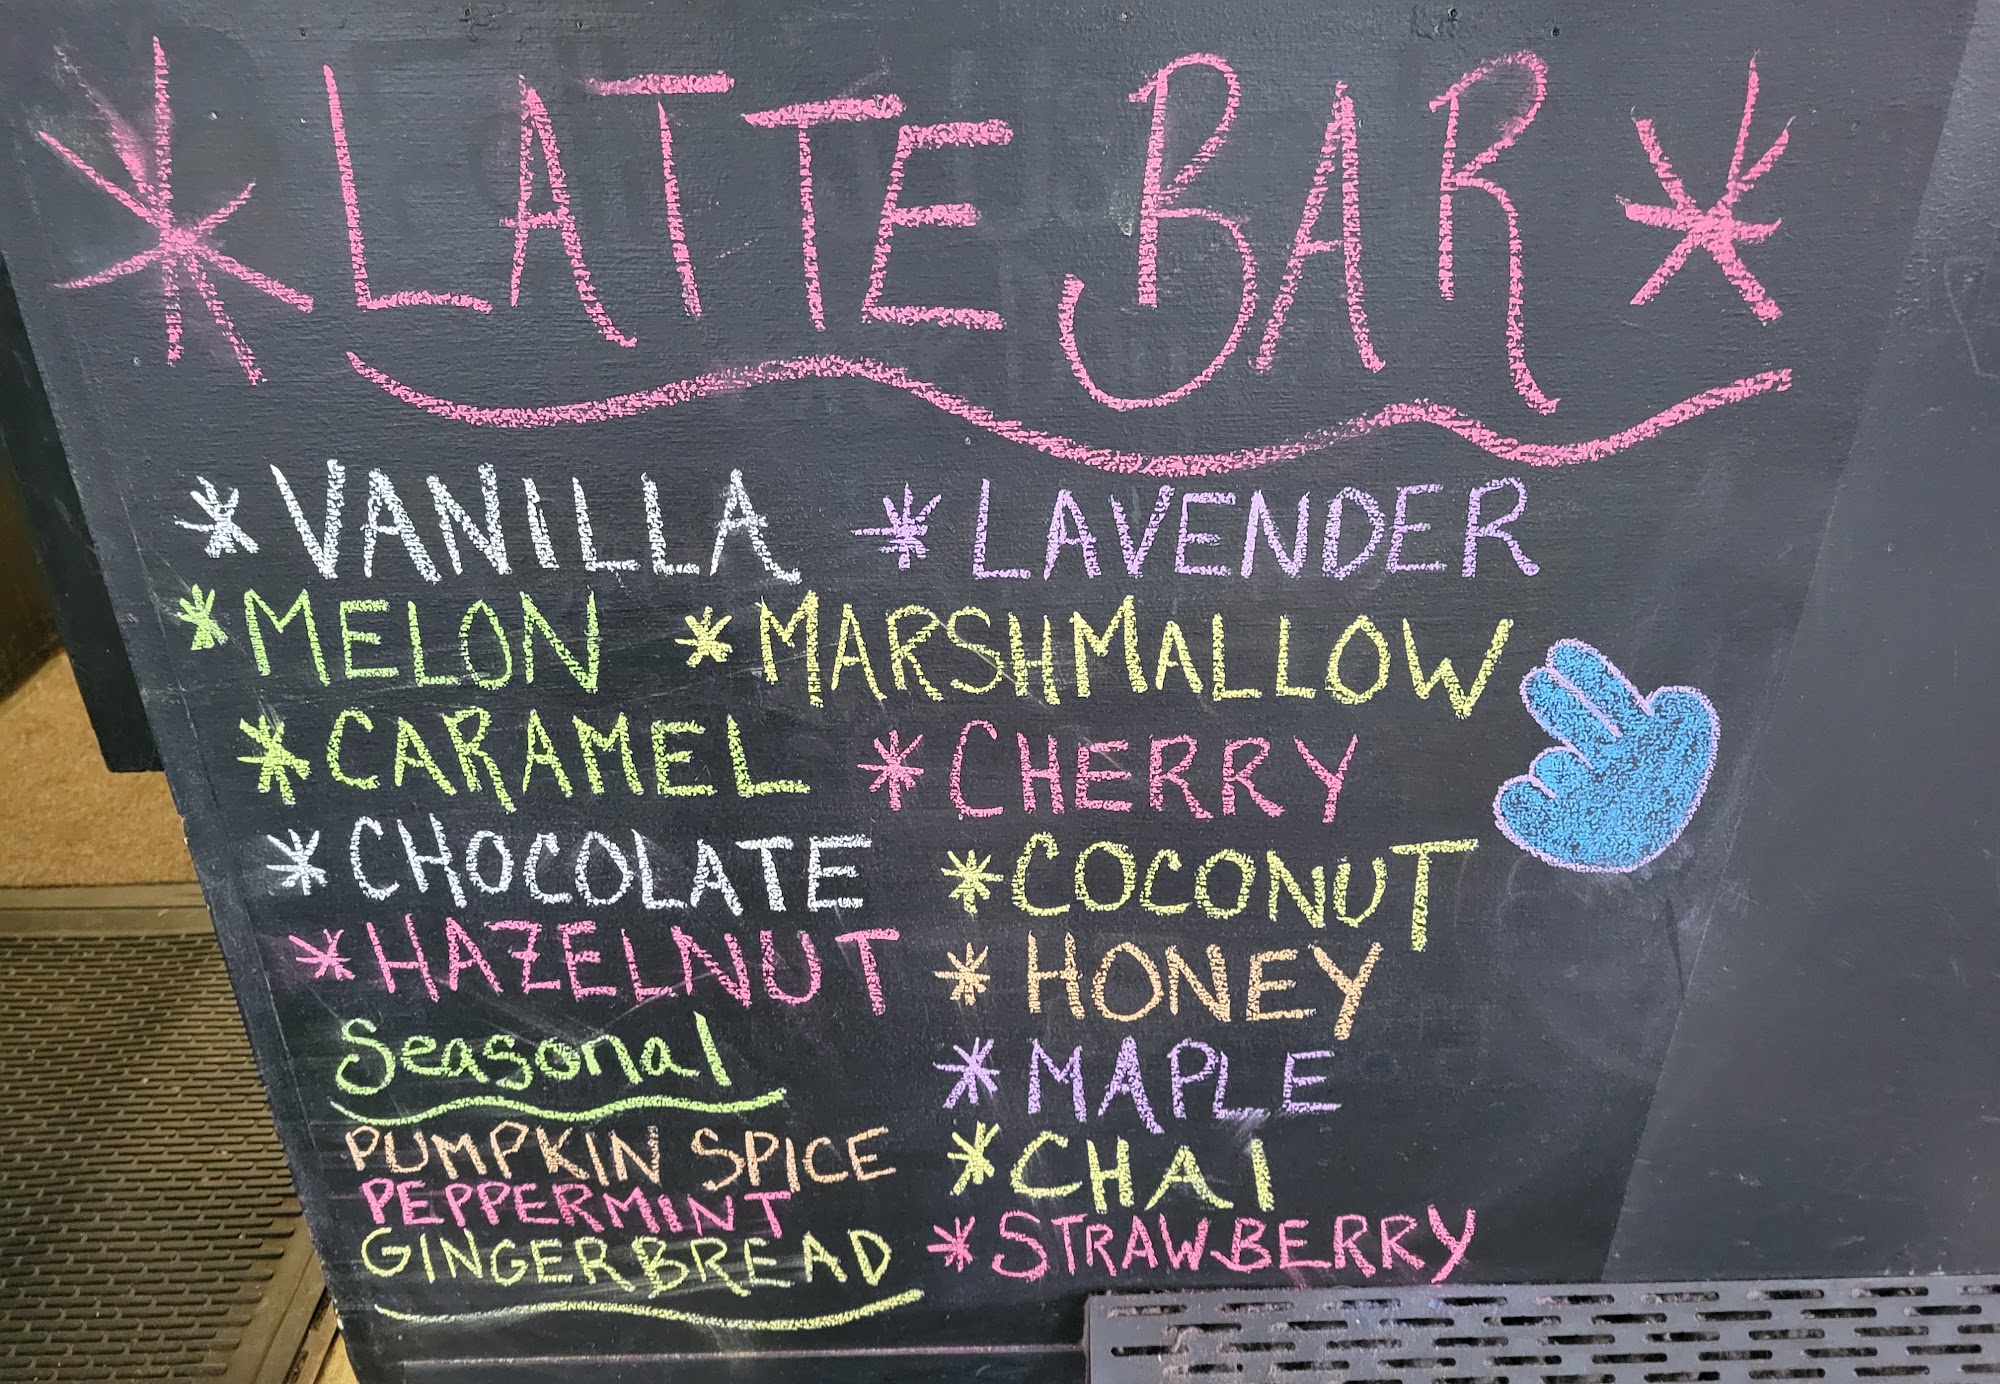 * LATTE BAR *
* VANILLA * LAVENDER
* MELON * MARSHMALLOW
* CARAMEL * CHERRY
* CHOCOLATE * COCONUT
* HAZELNUT * HONEY
Seasonal
PUMPKIN SPICE
PEPPERMINT
GINGERBREAD
* MAPLE
* CHAI
* STRAWBERRY